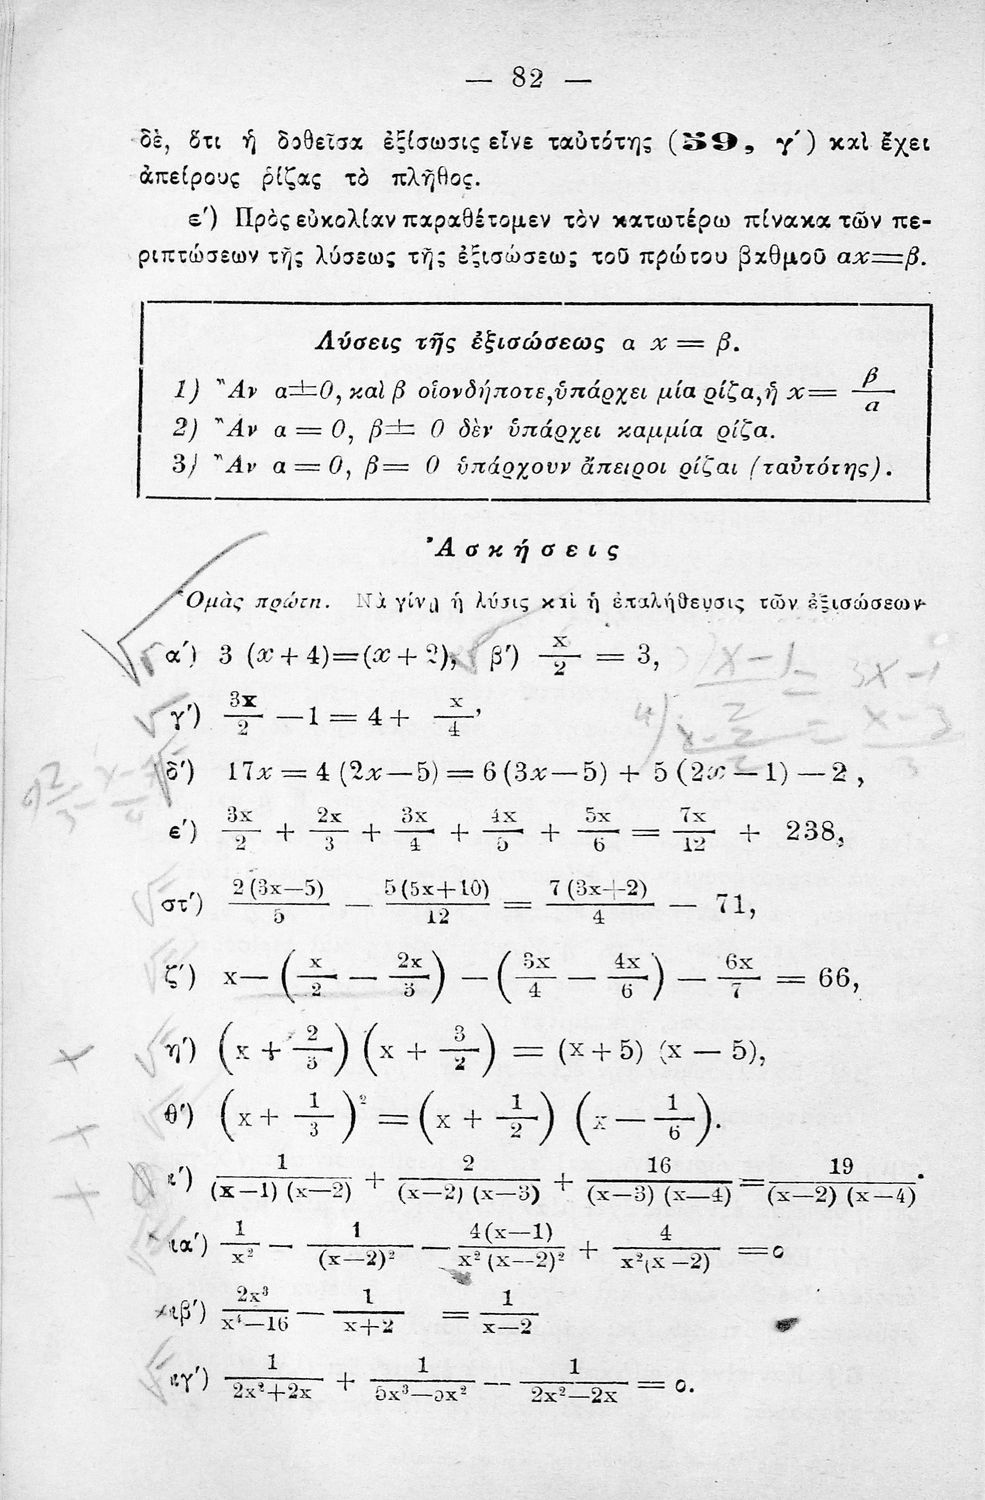 — 82 —
δὲ, ὅτι ἡ δοθεῖσα ἐξίσωσις εἶνε ταὐτότης (59, γ′) καὶ ἔχει
ἀπείρους ῥίζας τὸ πλῆθος.
ε′) Πρὸς εὐκολίαν παραθέτομεν τὸν κατωτέρω πίνακα τῶν πε-
ριπτώσεων τῆς λύσεως τῆς ἐξισώσεως τοῦ πρώτου βαθμοῦ αx=β.
Λύσεις τῆς ἐξισώσεως α x = β.
1) Ἂν α≠0, καὶ β οἱονδήποτε, ὑπάρχει μία ρίζα, ἡ x= β/α
2) Ἂν α = 0, β≠ 0 δὲν ὑπάρχει καμμία ρίζα.
3) Ἂν α = 0, β= 0 ὑπάρχουν ἄπειροι ρίζαι (ταὐτότης).
Ἀσκήσεις
Ὁμὰς πρώτη. Νὰ γίνῃ ἡ λύσις καὶ ἡ ἐπαλήθευσις τῶν ἐξισώσεων
α′) 3 (x + 4)=(x + 2), β′) x/2 = 3,
γ′) 3x/2 —1 = 4 + x/4,
δ′) 17x = 4 (2x—5) = 6 (3x—5) + 5 (2x—1) — 2,
ε′) 3x/2 + 2x/3 + 3x/4 + 4x/5 + 5x/6 = 7x/12 + 238,
στ′) 2(3x—5)/5 — 5(5x+10)/12 = 7(3x+2)/4 — 71,
ζ′) x— (x/2 — 2x/3) — (3x/4 — 4x/6) — 6x/7 = 66,
η′) (x + 2/3) (x + 3/2) = (x + 5) (x — 5),
θ′) (x + 1/3)² = (x + 1/2) (x — 1/6).
ι′) 1/(x—1) (x—2) + 2/(x—2) (x—3) + 16/(x—3) (x—4) = 19/(x—2) (x—4).
ια′) 1/x² — 1/(x—2)² — 4(x—1)/x² (x—2)² + 4/x²(x—2) =0
ιβ′) 2x³/x⁴—16 — 1/x+2 = 1/x—2
ιγ′) 1/2x²+2x + 1/5x³—5x² — 1/2x²—2x = 0.